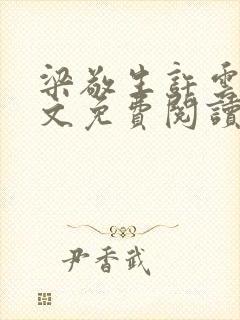 梁敬生許雲
文免費閱讀
尹香武